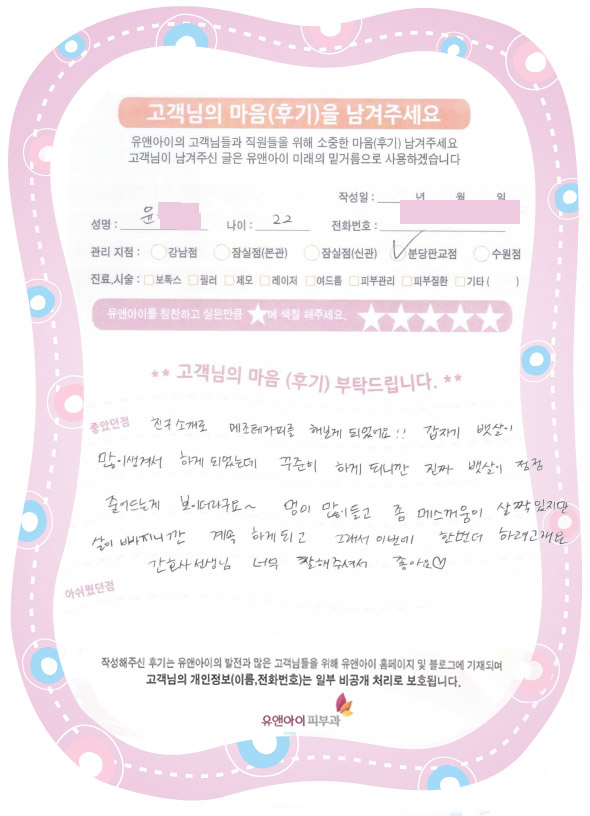 고객님의 마음(후기)을 남겨주세요
유앤아이의 고객님들과 직원들을 위해 소중한 마음(후기) 남겨주세요
고객님이 남겨주신 글은 유앤아이 미래의 밑거름으로 사용하겠습니다
작성일 : 년 월 일
성명 : 윤 나이 : 22 전화번호 :
관리 지점 : 강남점 잠실점(본관) 잠실점(신관) 분당판교점 수원점
진료,시술 : 보톡스 필러 제모 레이저 여드름 피부관리 피부질환 기타 ( )
유앤아이를 칭찬하고 싶은만큼 ★에 색칠 해주세요. ★★★★★
** 고객님의 마음 (후기) 부탁드립니다. **
좋았던점 친구소개로 메조테라피를 해보게 되었어요!! 갑자기 뱃살이
많이생겨서 하게 되었는데 꾸준히 하게 되니깐 진짜 뱃살이 점점
줄어드는게 보이더라구요~ 멍이 많이들고 좀 메스꺼움이 살짝있지만
살이 빠지니깐 계속 하게되고 그래서 이번에 한번더 하려고해요
간호사선생님 너무 잘해주셔서 좋아요♡
아쉬웠던점
작성해주신 후기는 유앤아이의 발전과 많은 고객님들을 위해 유앤아이 홈페이지 및 블로그에 기재되며
고객님의 개인정보(이름,전화번호)는 일부 비공개 처리로 보호됩니다.
유앤아이피부과